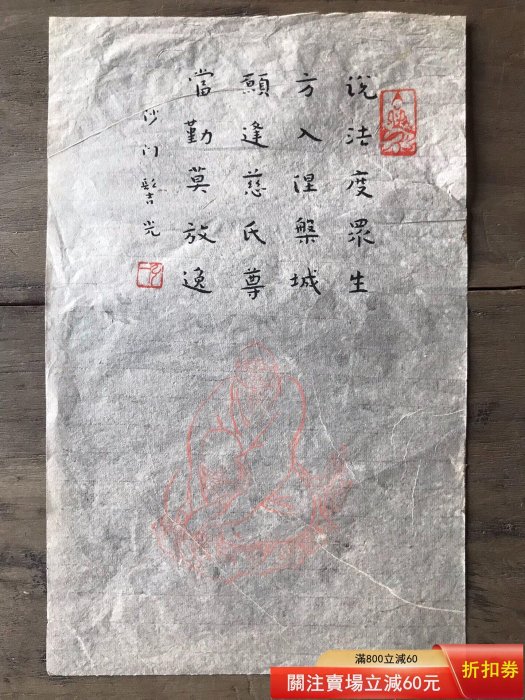 說法度眾生
方入涅槃城
願逢慈氏尊
當勤莫放逸
沙门髻光
滿800立減60
折扣券
關注賣場立減60元